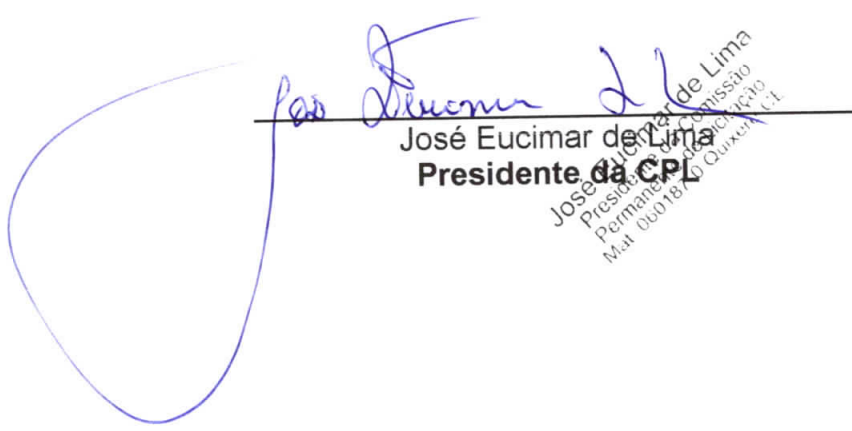 José Eucimar de Lima
Presidente da CPL
José Eucimar de Lima
Presidente da Comissão
Permanente de Licitação
Mat 0601870 Quixeré CE